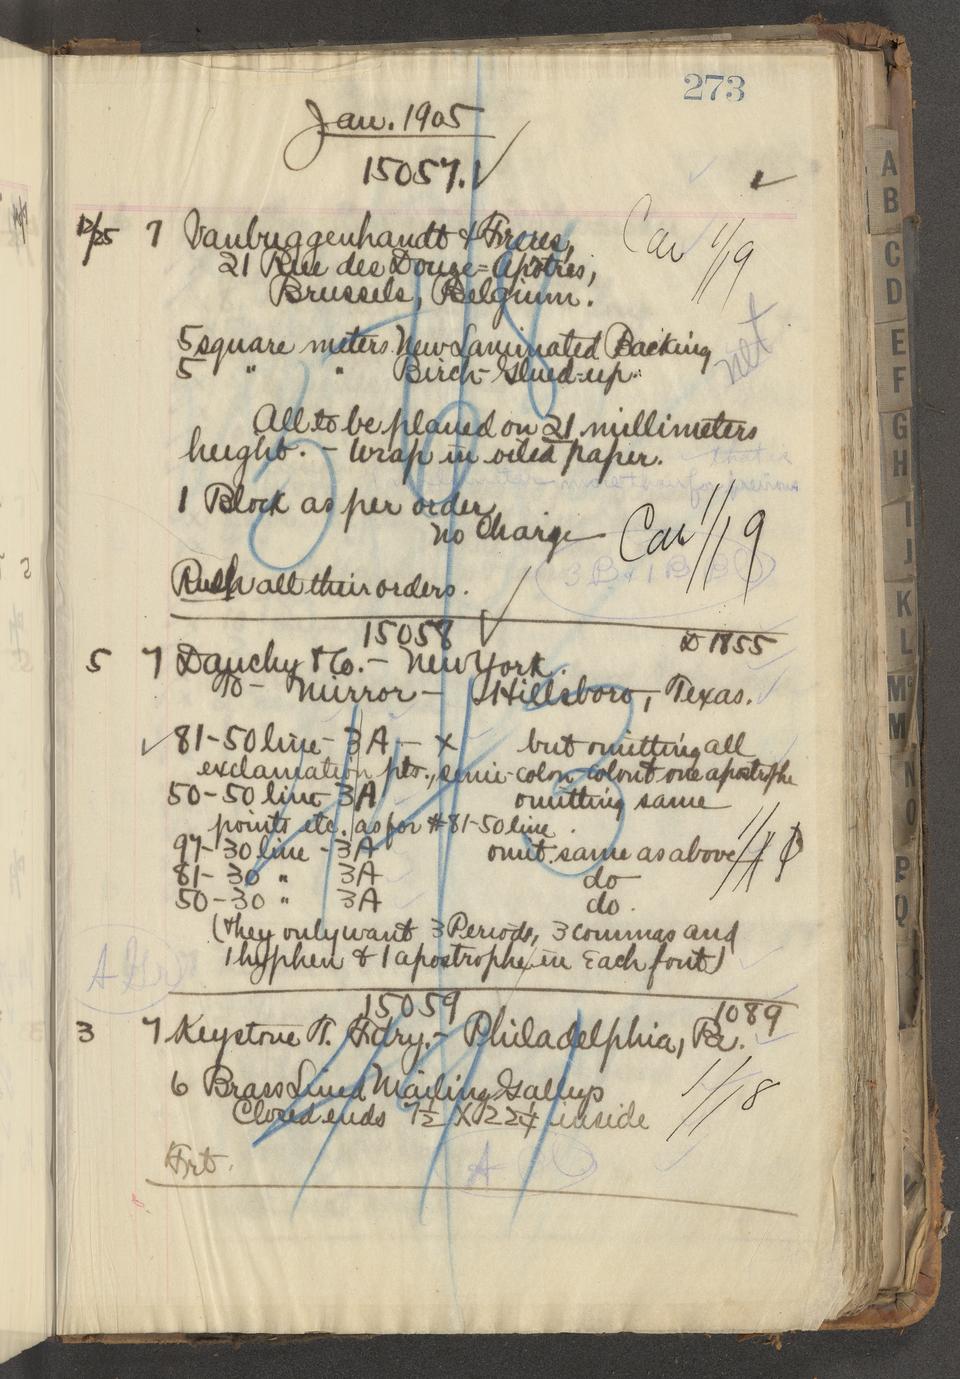 273
Jan. 1905
15057.
12/25 7 Vanbuggenhandt & Freres,
Car 1/19
21 Rue des Douze=Apôtres,
Brussels, Belgium.
5 square meters New Laminated Backing
net
5 " " Birch-Glued-up.
All to be planed on 21 millimeters
height. - Wrap in oiled paper.
1 Block as per order
No Charge
Car 1/19
Rush all their orders.
15058
D 1855
5 7 Dauchy & Co. - New York.
To - Mirror - Hillsboro, Texas.
81-50 line - 3A - X but omitting all
exclamation pts., semi-colon colon & one apostrophe
50-50 line 3A omitting same
points etc. as for #81-50 line.
97-30 line - 3A omit same as above
81-30 " 3A do
50-30 " 3A do.
(they only want 3 Periods, 3 commas and
1 hyphen & 1 apostrophe in each font)
15059
1089
3 7 Keystone T. Fdry. - Philadelphia, Pa.
6 Brass Lined Mailing Galleys
1/18
Closed ends 7½ X 22¼ inside
Frt.
A
A
B
C
D
E
F
G
H
I
J
K
L
Mc
M
N
O
P
Q